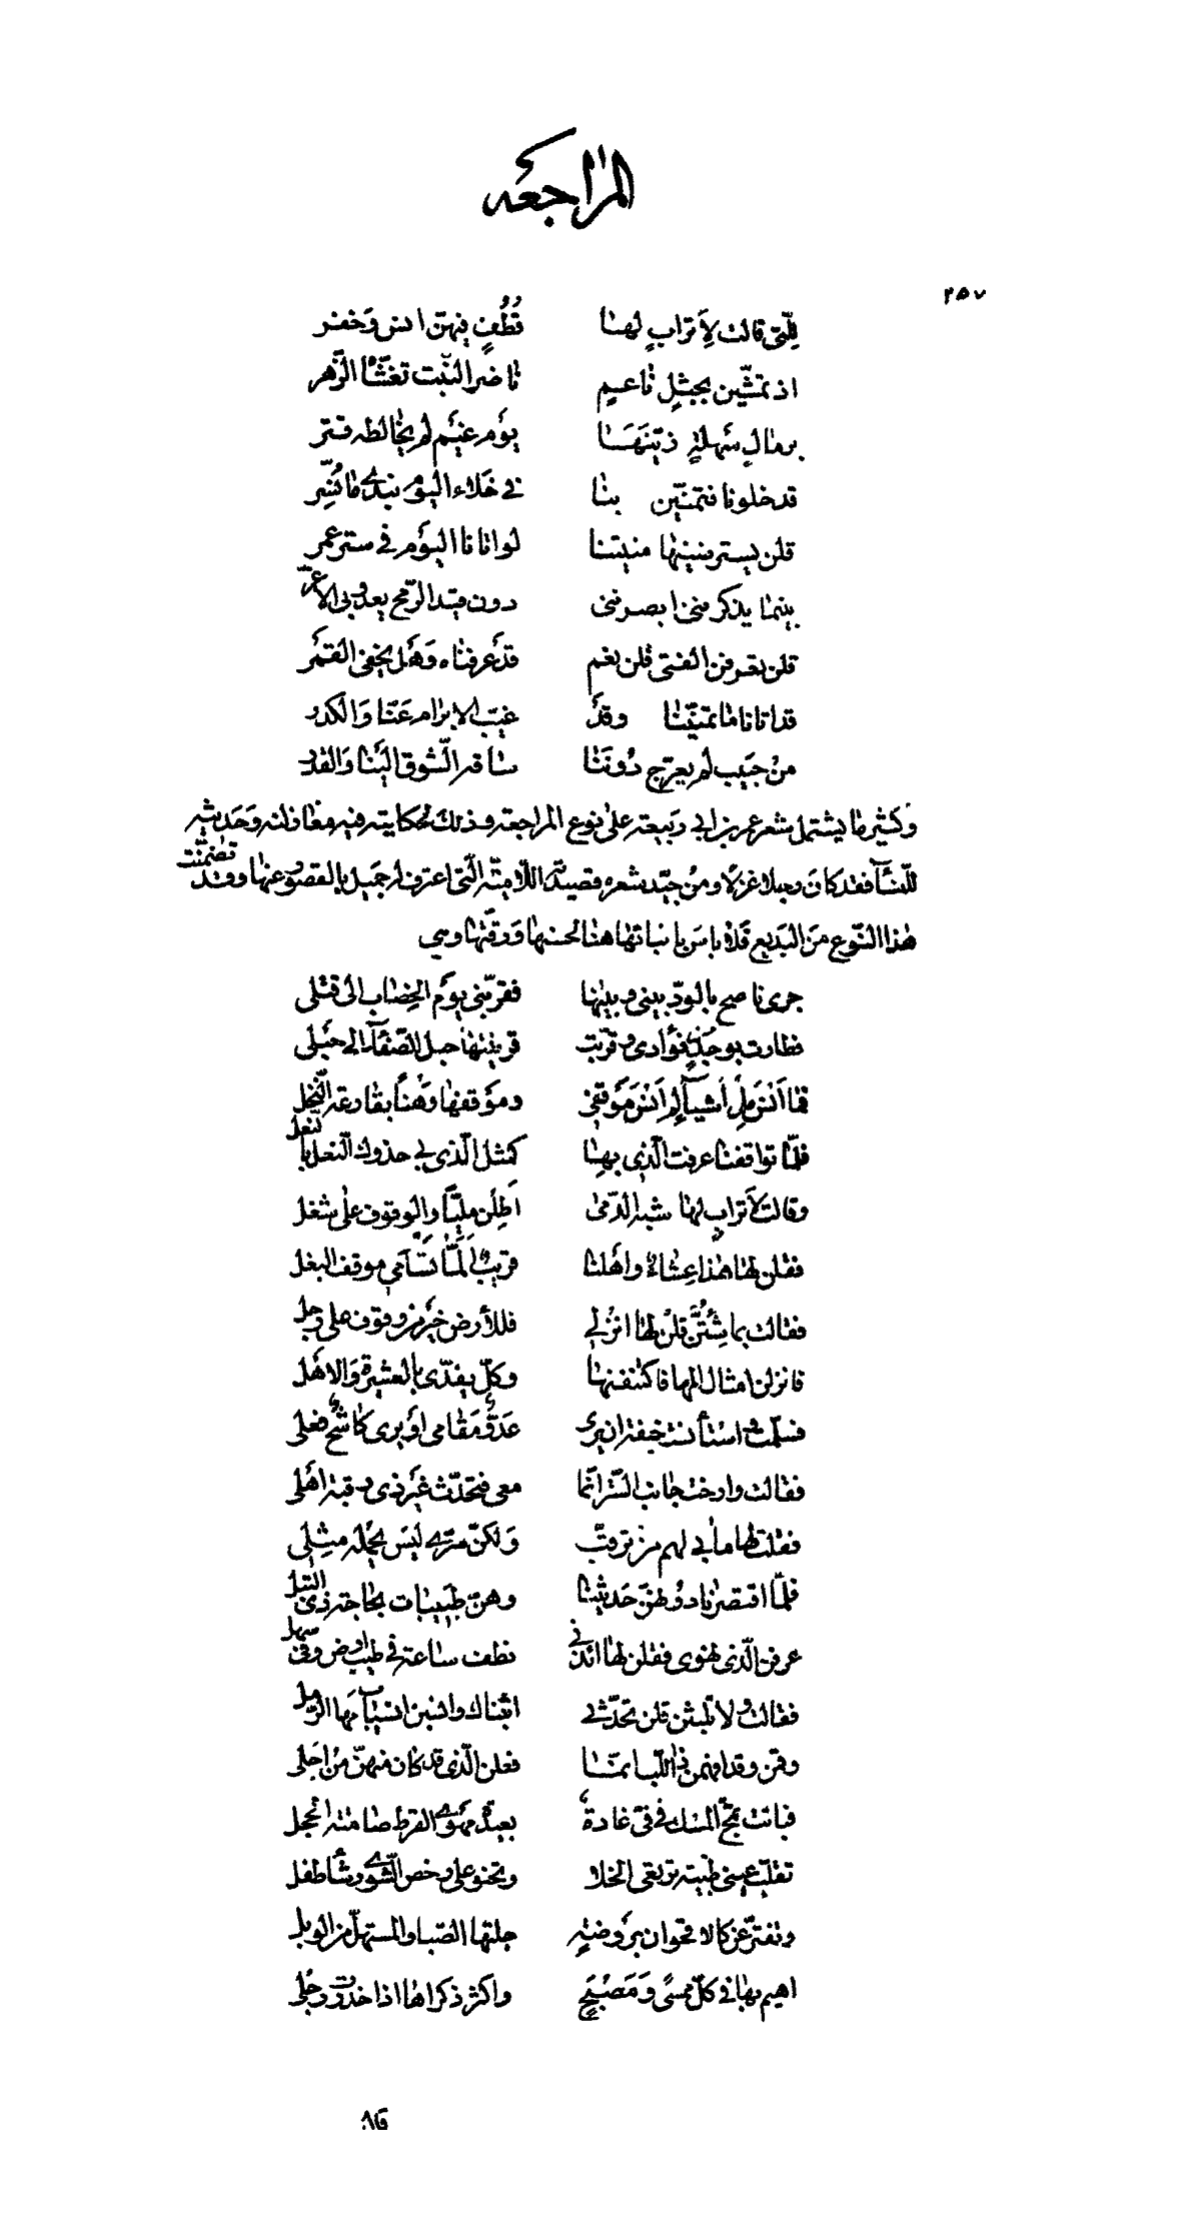 المراجعه
٢٥٧
للّتي قالت لأترابٍ لها قُطُفٍ فيهنّ انس وَخفر
اذ تمشّين بجبثلٍ ناعيمٍ ناضر النّبت تغشّاه الزّهر
برمالٍ سَهلةٍ زيّنَهَا يَوْم غيْمٍ لم يخالطه قتر
قد خلونا فتمنّين بنا في خَلاء اليَوْم نبدي ما نُسِر
قلن يسترضينها منيتنا لو اتانا اليَوْم في ستر عمر
بينما يذكرنني ابصرنني دون قيد الرّمح يعدو بي الاغر
قلن تعرفن الفتى قلن نعم قد عَرفناه وَهَل يخفى القَمَر
قد اتانا ما تمنّينا وقد غيّب الابرام عَنّا وَالكدر
منْ حَبيب لم يعرّج دُونَنا ساقه الشّوق اليَنا وَالقدر
وَكثير ما يشتمل شعر عمر بن ابي ربيعة على نوع المراجعة وذلك لحكايته فيه مغازلته وَحَديثه
للنّسآء فقد كان رجلا غزلا ومنْ جيّد شعره قصيدته اللاميّة الّتي اعترف له جَميل بالقصور عنها وقد تضمّنت
هٰذا النّوع منَ البَديع فَلا باسَ باثباتها هنا لحسنها وَرقّتها وهي
جرى ناصح بالودّ بيني وبينها فقرّبني يَوْم الحِضاب الى قتلى
فطارت بوجدٍ فؤادى وقرّبت قرينتها حبل الصّفآء الى حَبلى
فما اَنسَ مِلْ اَشيآء لم اَنسَ مَوقفي وموقفها وَهنًا بقارعة النّخل
فلمّا تواقفنا عرفت الّذى بها كمثل الّذى بي حذوك النّعل بالنعل
وقالت لأترابٍ لها شبه الدّمى اَطِلْن مليّا والوقوف على شغل
فقلن لها هٰذا عِشاءٌ واهلنا قريبٌ اَلَمَّا تَسْآمي موقف البغل
فقالت بما شِئتُنَّ قلنْ لها انزلي فللأرض خَير من وقوف على رجل
فانزلن امثال المها فاكتنفنها وكلّ يفدّى بالعشيرة وَالاهل
فسلّمت واستأنست خيفة ان يرى عَدوٌّ مَقامي اوْ يرى كاشحٌ فعلى
فقالت وارخت جانب السّتر انّما معى فتحدّث غَير ذى رقبة اهلى
فقلت لها ما بي لهم من ترقّب وَلكنّ سرّي ليس يحمله مِثلى
فلمّا اقتصرنا دونهنّ حَديثنا وهنّ طبيبات بحاجة ذى التبل
عرفن الّذى نهوى فقلن لها ائذني نطف ساعة في طيب ارض وفي سهل
فقالت ولا تلبثن قلن تحدّثي اتيناك وانسبن انسياب مَها الرّمل
وقمن وقد افهمن ذا اللّب انّما فعلن الّذى قد كان منهنّ منْ اَجلى
فباتت تمجّ المسك في فيّ غادةٌ بعيدةٌ مهوي القرط صامتة الحجل
تقلّب عيني ظبية ترتعى الخلا وتحنو على رخص الشّوي رشأ طفل
وتفترّ عن كالاقحوان بروضةٍ جلتها الصّبا والمستهلّ من الوبل
اهيم بها في كلّ ممسًى وَمَصْبَحٍ واكثر ذكراها اذا خدرت رجلى